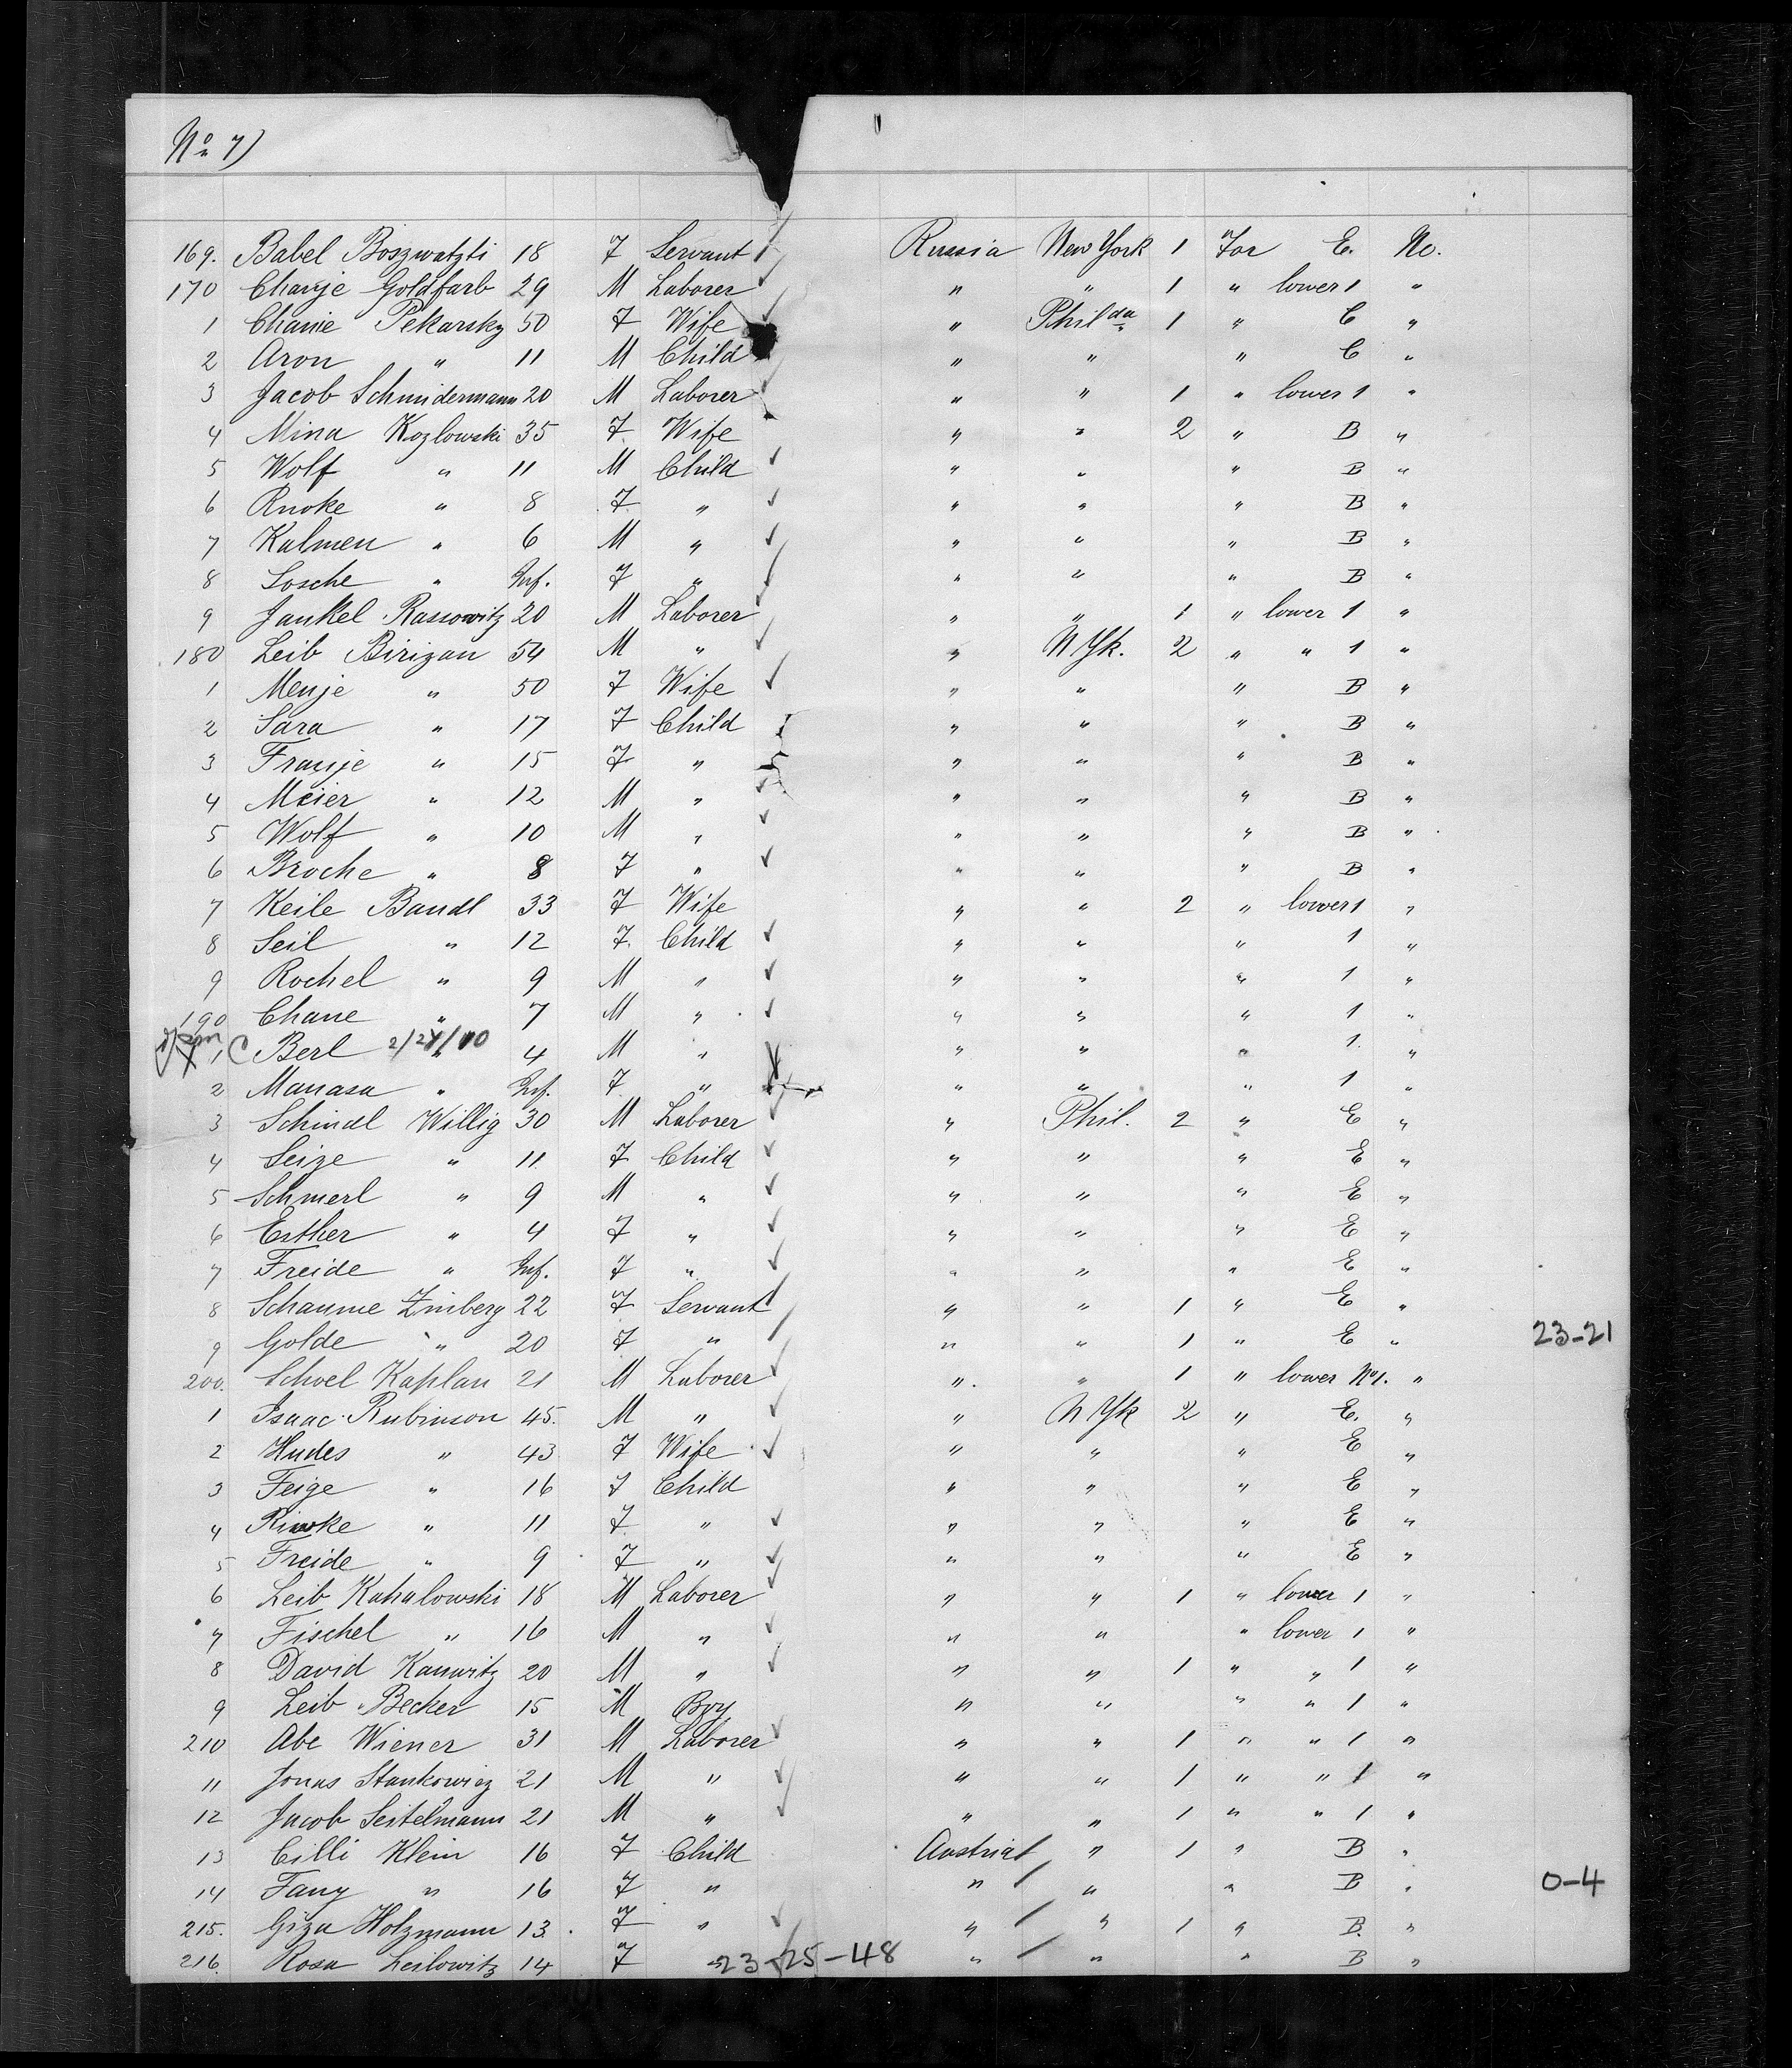 No 7)
169. Babel Boszwatzti 18 F Servant Russia New York 1 For E. No.
170 Chanje Goldfarb 29 M Laborer " " 1 " lower 1 "
1 Chanie Pekarsky 50 F Wife " Philda 1 " C "
2 Aron " 11 M Child " " " C "
3 Jacob Schmidermann 20 M Laborer " " 1 " lower 1 "
4 Mina Kozlowski 35 F Wife " " 2 " B "
5 Wolf " 11 M Child " " " B "
6 Rnoke " 8 F " " " " B "
7 Kalmen " 6 M " " " " B "
8 Sosche " Inf. F " " " " B "
9 Jankel Rassowitz 20 M Laborer " " 1 " lower 1 "
180 Leib Birizan 54 M " " N Yk. 2 " " 1 "
1 Menje " 50 F Wife " " " B "
2 Sara " 17 F Child " " " B "
3 Franje " 15 F " " " " B "
4 Meier " 12 M " " " " B "
5 Wolf " 10 M " " " " B "
6 Broche " 8 F " " " " B "
7 Keile Bandl 33 F Wife " " 2 " lower 1 "
8 Seil " 12 F Child " " " 1 "
9 Rochel " 9 M " " " " 1 "
190 Chane " 7 M " " " " 1 "
1 C Berl " 2/24/40 4 M " " " " 1. "
2 Manasa " Inf. F " " " " 1 "
3 Schindl Willig 30 M Laborer " Phil. 2 " E "
4 Seize " 11 F Child " " " E "
5 Schmerl " 9 M " " " " E "
6 Esther " 4 F " " " " E "
7 Freide " Inf. F " " " " E "
8 Schaume Zinberg 22 F Servant " " 1 " E "
9 Golde " 20 F " " " 1 " E " 23-21
200. Schoel Kaplan 21 M Laborer " " 1 " lower No 1. "
1 Isaac Rubinson 45. M " " N Yk 2 " E. "
2 Hudes " 43 F Wife " " " E "
3 Feige " 16 F Child " " " E "
4 Riwke " 11 F " " " " E "
5 Freide " 9 F " " " " E "
6 Leib Kahalowski 18 M Laborer " " 1 " lower 1 "
7 Fischel " 16 M " " " " lower 1 "
8 David Kanwitz 20 M " " " 1 " " 1 "
9 Leib Becker 15 M Boy " " " " 1 "
210 Abe Wiener 31 M Laborer " " 1 " " 1 "
11 Jonas Stankowicz 21 M " " " 1 " " 1 "
12 Jacob Seitelmann 21 M " " " 1 " " 1 "
13 Cilli Klein 16 F Child Austria " 1 " B "
14 Fany " 16 F " " " " B " 0-4
215. Giza Holzmann 13. F " " " 1 " B. "
216. Rosa Leilowitz 14 F 23-25-48 " " " B "